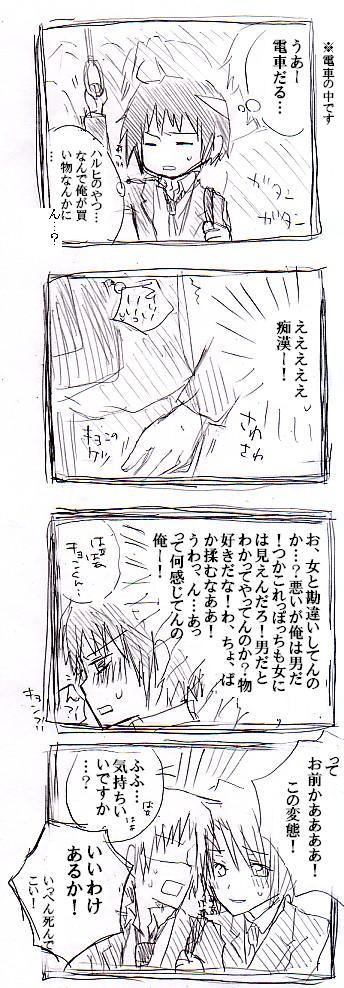 ※電車の中です
うあー
電車だる…
ガタン
ガタン
ハルヒのやつ…
なんで俺が買
い物なんかに
…
ん…?
えええええ
痴漢ー!
さわ
さわ
キョンの
ケツ
お、女と勘違いしてんの
か…?悪いが俺は男だ
!つかこれっぽっちも女に
は見えんだろ!男だと
わかってやってんのか?物
好きだな!わ、ちょ、ば
か揉むなああ!
うわっ、ん…あっ
って何感じてんの
俺ー!
はぁはぁ
キョンくん…
ん?!
キョン?!
って
お前かああああ!
この変態!
ふふ…
気持ちい
いですか
…?
はぁ
はぁ
いいわけ
あるか!
いっぺん死んで
こい!